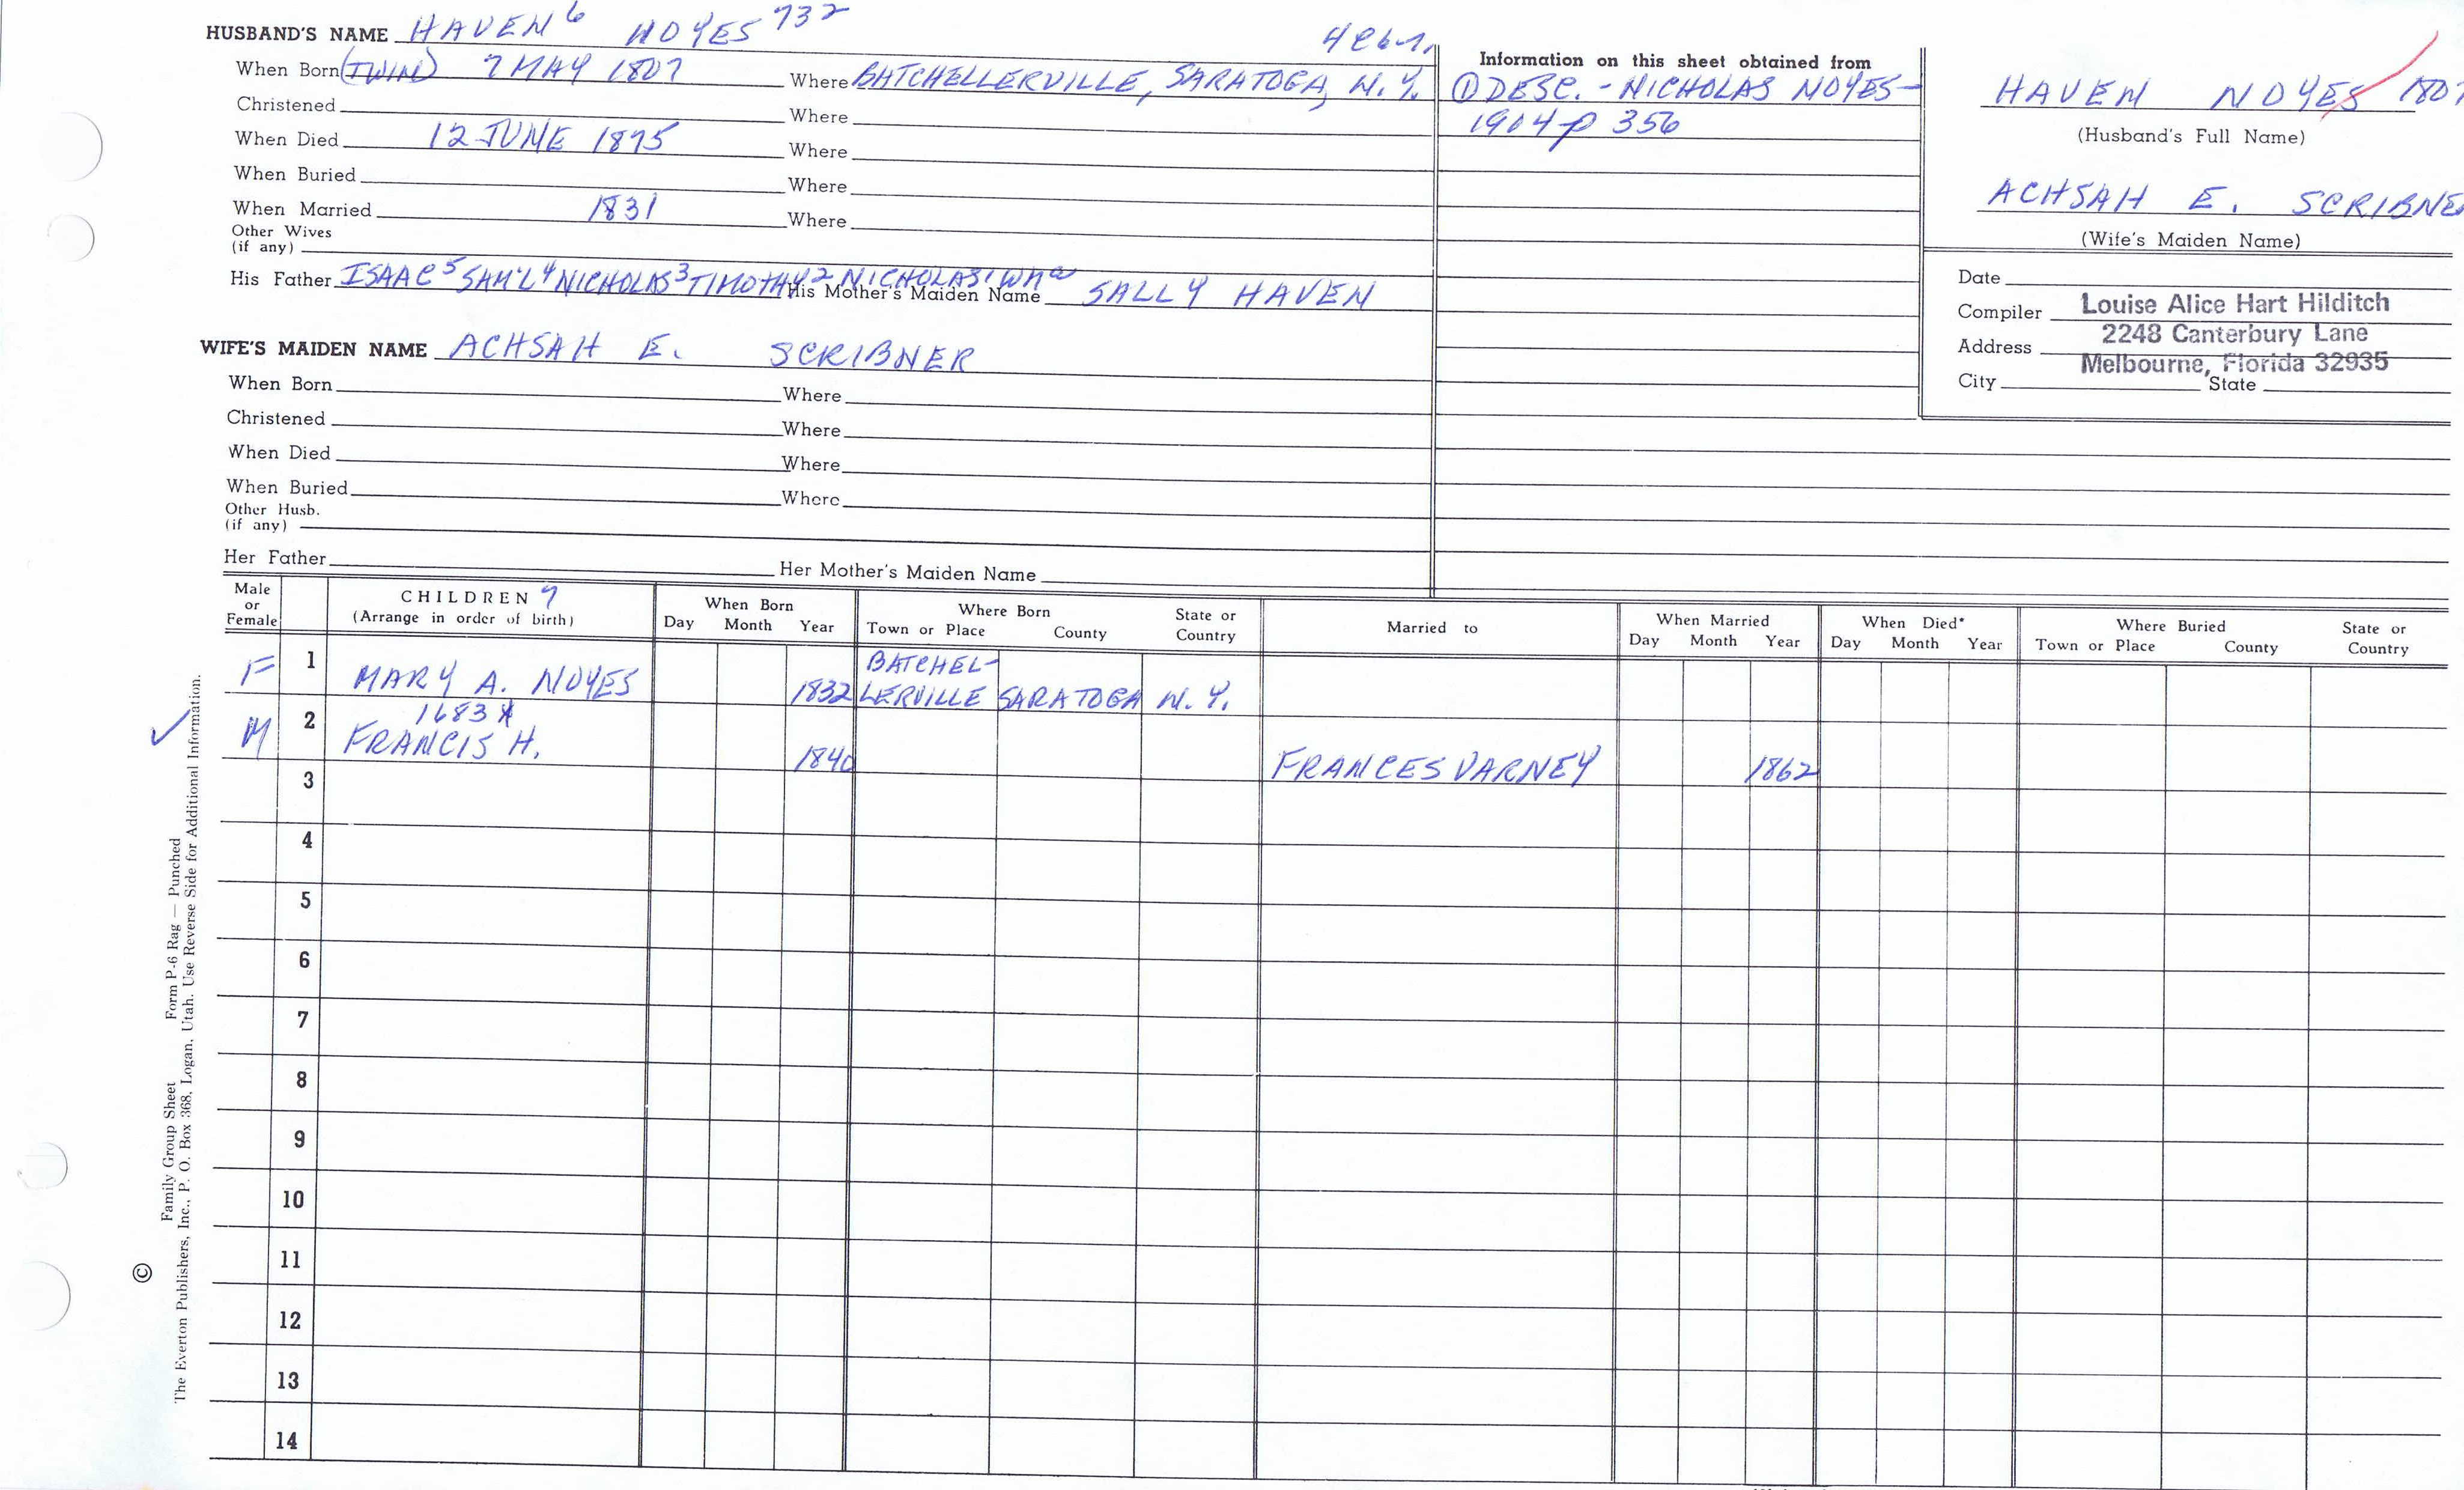 HUSBAND'S NAME HAVEN 6 NOYES 732
When Born (TWIN) 7 MAY 1807 Where BATCHELLERVILLE, SARATOGA, N.Y.
Christened Where
When Died 12 JUNE 1875 Where
When Buried Where
When Married 1831 Where
Other Wives
(if any)
His Father ISAAC 5 SAM'L 4 NICHOLAS 3 TIMOTHY 2 NICHOLAS 1 Wm a His Mother's Maiden Name SALLY HAVEN
WIFE'S MAIDEN NAME ACHSAH E. SCRIBNER
When Born Where
Christened Where
When Died Where
When Buried Where
Other Husb.
(if any)
Her Father Her Mother's Maiden Name
Information on this sheet obtained from
① DESC. - NICHOLAS NOYES -
1904 p 356
HAVEN NOYES 1807
(Husband's Full Name)
ACHSAH E. SCRIBNE
(Wife's Maiden Name)
Date
Compiler Louise Alice Hart Hilditch
Address 2248 Canterbury Lane
Melbourne, Florida 32935
City State
Male or Female
CHILDREN 7
(Arrange in order of birth)
When Born
Day Month Year
Where Born
Town or Place County State or Country
Married to
When Married
Day Month Year
When Died*
Day Month Year
Where Buried
Town or Place County State or Country
F 1 MARY A. NOYES 1832 BATCHEL-
LERVILLE SARATOGA N.Y.
1683 X
✓ M 2 FRANCIS H. 1840 FRANCES VARNEY 1862
3
4
5
6
7
8
9
10
11
12
13
14
© Family Group Sheet Form P-6 Rag — Punched
The Everton Publishers, Inc., P. O. Box 368, Logan, Utah. Use Reverse Side for Additional Information.